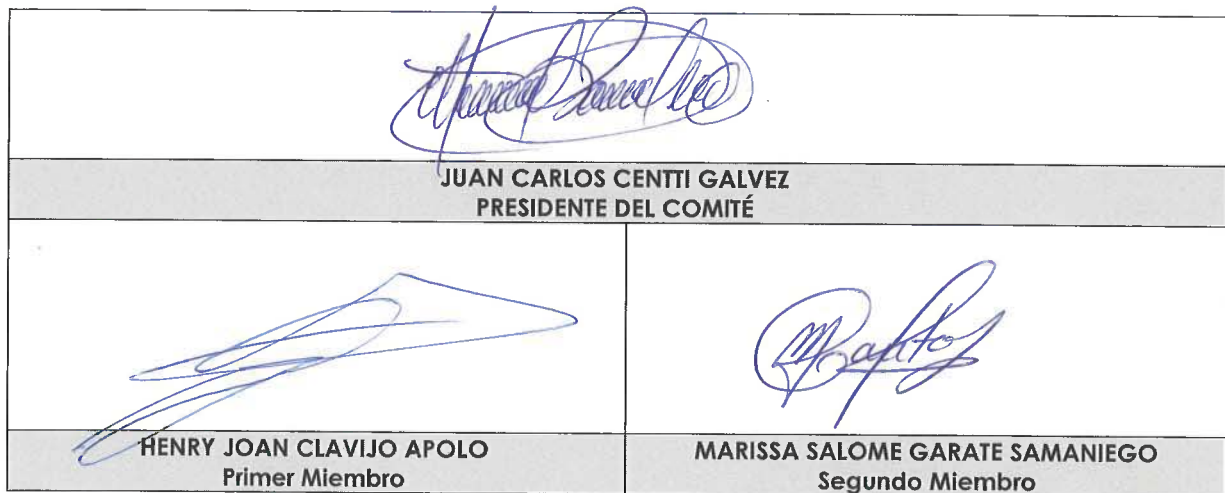 JUAN CARLOS CENTTI GALVEZ
PRESIDENTE DEL COMITÉ
HENRY JOAN CLAVIJO APOLO
Primer Miembro
MARISSA SALOME GARATE SAMANIEGO
Segundo Miembro